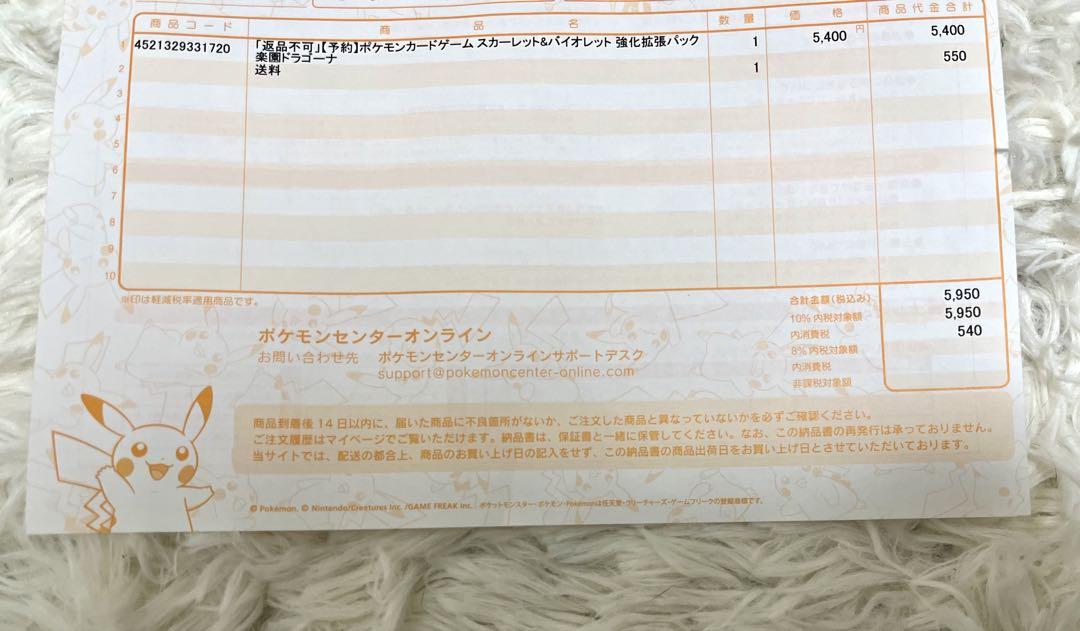 商品コード 商品名 数量 価格 商品代金合計
円
1 4521329331720 「返品不可」【予約】ポケモンカードゲーム スカーレット&バイオレット 強化拡張パック 1 5,400 5,400
楽園ドラゴーナ
2 送料 1 550
3
4
5
6
7
8
9
10
※印は軽減税率適用商品です。
合計金額(税込み) 5,950
10%内税対象額 5,950
内消費税 540
8%内税対象額
内消費税
非課税対象額
ポケモンセンターオンライン
お問い合わせ先 ポケモンセンターオンラインサポートデスク
support@pokemoncenter-online.com
商品到着後14日以内に、届いた商品に不良箇所がないか、ご注文した商品と異なっていないかを必ずご確認ください。
ご注文履歴はマイページでご覧いただけます。納品書は、保証書と一緒に保管してください。なお、この納品書の再発行は承っておりません。
当サイトでは、配送の都合上、商品のお買い上げ日の記入をせず、この納品書の商品出荷日をお買い上げ日とさせていただいております。
© Pokémon. © Nintendo/Creatures Inc. /GAME FREAK Inc. ポケットモンスター・ポケモン・Pokémonは任天堂・クリーチャーズ・ゲームフリークの登録商標です。